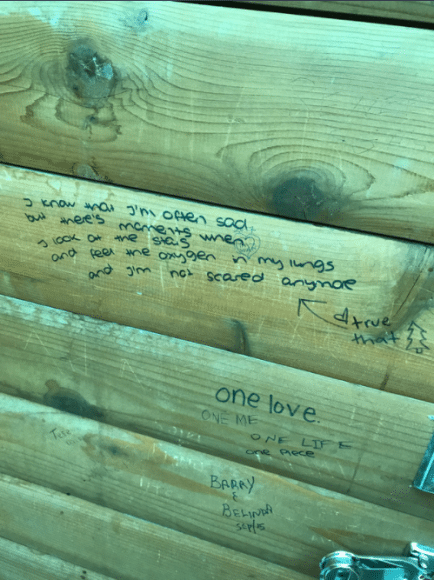 I know that I'm often sad
but there's moments when
I look at the stars
and feel the oxygen in my lungs
and I'm not scared anymore
true
that
one love.
ONE ME
ONE LIFE
ONE PIECE
BARRY
&
BELINDA